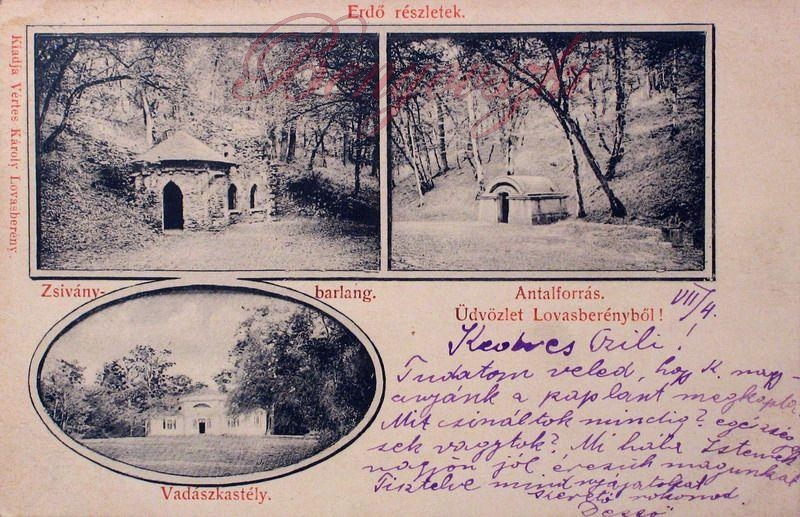 Erdő részletek.
Kiadja Vértes Károly Lovasberény
Zsivány-barlang.
Antalforrás.
Üdvözlet Lovasberényből!
Vadászkastély.
VII/4.
Kedves Czili!
Tudatom veled, hogy K. nagy-
anyánk a kaplant megkapta.
Mit csináltok mindig? egészsé-
sek vagytok? Mi hála Istennek
nagyon jól érezük magunkat
Tisztelve mindnyájatokat
szerető rokonod
Dezső